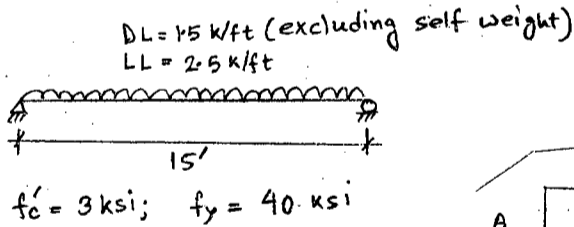 DL = 1.5 k/ft (excluding self weight)
LL = 2.5 k/ft
15'
fc' = 3 ksi; fy = 40 ksi
A